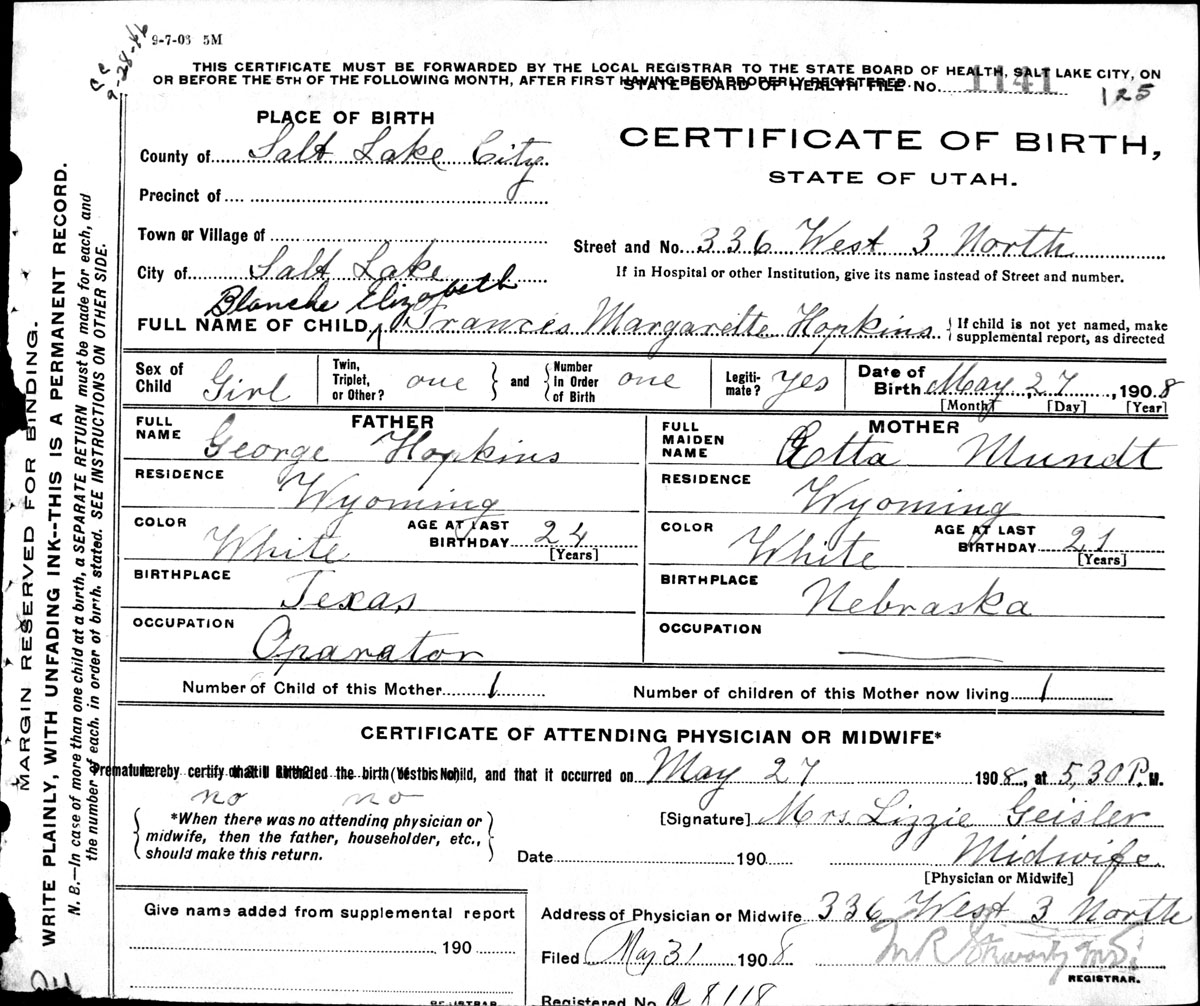 9-7-03 5M
9-28-46
THIS CERTIFICATE MUST BE FORWARDED BY THE LOCAL REGISTRAR TO THE STATE BOARD OF HEALTH, SALT LAKE CITY, ON
OR BEFORE THE 5TH OF THE FOLLOWING MONTH, AFTER FIRST HAVING BEEN PROPERLY REGISTERED.
STATE BOARD OF HEALTH FILE No. 1141
125
PLACE OF BIRTH
CERTIFICATE OF BIRTH,
STATE OF UTAH.
County of Salt Lake City
Precinct of
Town or Village of
Street and No. 336 West 3 North
City of Salt Lake
If in Hospital or other Institution, give its name instead of Street and number.
Blanche Elizabeth
FULL NAME OF CHILD Frances Margarette Hopkins { If child is not yet named, make supplemental report, as directed
Sex of Child Girl Twin, Triplet, or Other? one } and { Number in Order of Birth one Legiti-mate? yes Date of Birth May 27, 1908
[Month] [Day] [Year]
FATHER
FULL NAME George Hopkins
RESIDENCE Wyoming
COLOR White AGE AT LAST BIRTHDAY 24 [Years]
BIRTHPLACE Texas
OCCUPATION Oparator
MOTHER
FULL MAIDEN NAME Etta Mundt
RESIDENCE Wyoming
COLOR White AGE AT LAST BIRTHDAY 21 [Years]
BIRTHPLACE Nebraska
OCCUPATION
Number of Child of this Mother 1 Number of children of this Mother now living 1
CERTIFICATE OF ATTENDING PHYSICIAN OR MIDWIFE*
hereby certify that I attended the birth of this child, and that it occurred on May 27 1908, at 5,30 P.M.
Premature (Yes or No)
no no
*When there was no attending physician or
midwife, then the father, householder, etc.,
should make this return.
[Signature] Mrs. Lizzie Geisler
Date 190 Midwife
[Physician or Midwife]
Give name added from supplemental report
190
REGISTRAR
Address of Physician or Midwife 336 West 3 North
Filed May 31 1908
REGISTRAR.
Registered No. a 8118
MARGIN RESERVED FOR BINDING.
WRITE PLAINLY, WITH UNFADING INK--THIS IS A PERMANENT RECORD.
N. B.—In case of more than one child at a birth, a SEPARATE RETURN must be made for each, and
the number of each, in order of birth, stated. SEE INSTRUCTIONS ON OTHER SIDE.